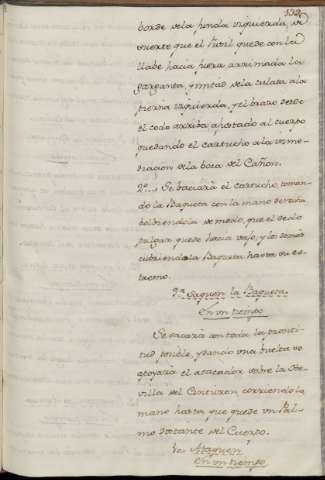 132
borde de la funda izquierda, de
suerte que el fusil quede con la
llabe hacia fuera arrimada la
garganta, y mitad de la culata a la
pierna izquierda, y el brazo desde
el codo arriba ajustado al cuerpo
quedando el cartucho a la inme-
diacion de la boca del Cañon.
2º... Se baciará el cartucho, toman-
do la Baqueta con la mano derecha
bolbiendola de modo, que el dedo
pulgar quede hacia vajo, y los demás
cubriendo la Baqueta hasta su es-
tremo.
9ª Saquen la Baqueta.
En un tiempo
Se sacará con toda la pronti-
tud posible, y dando una buelta se
apoyará el atacador sobre la He-
villa del Cinturon corriendo la
mano hasta que quede un Pal-
mo distante del Cuerpo.
Ataquen
En un tiempo